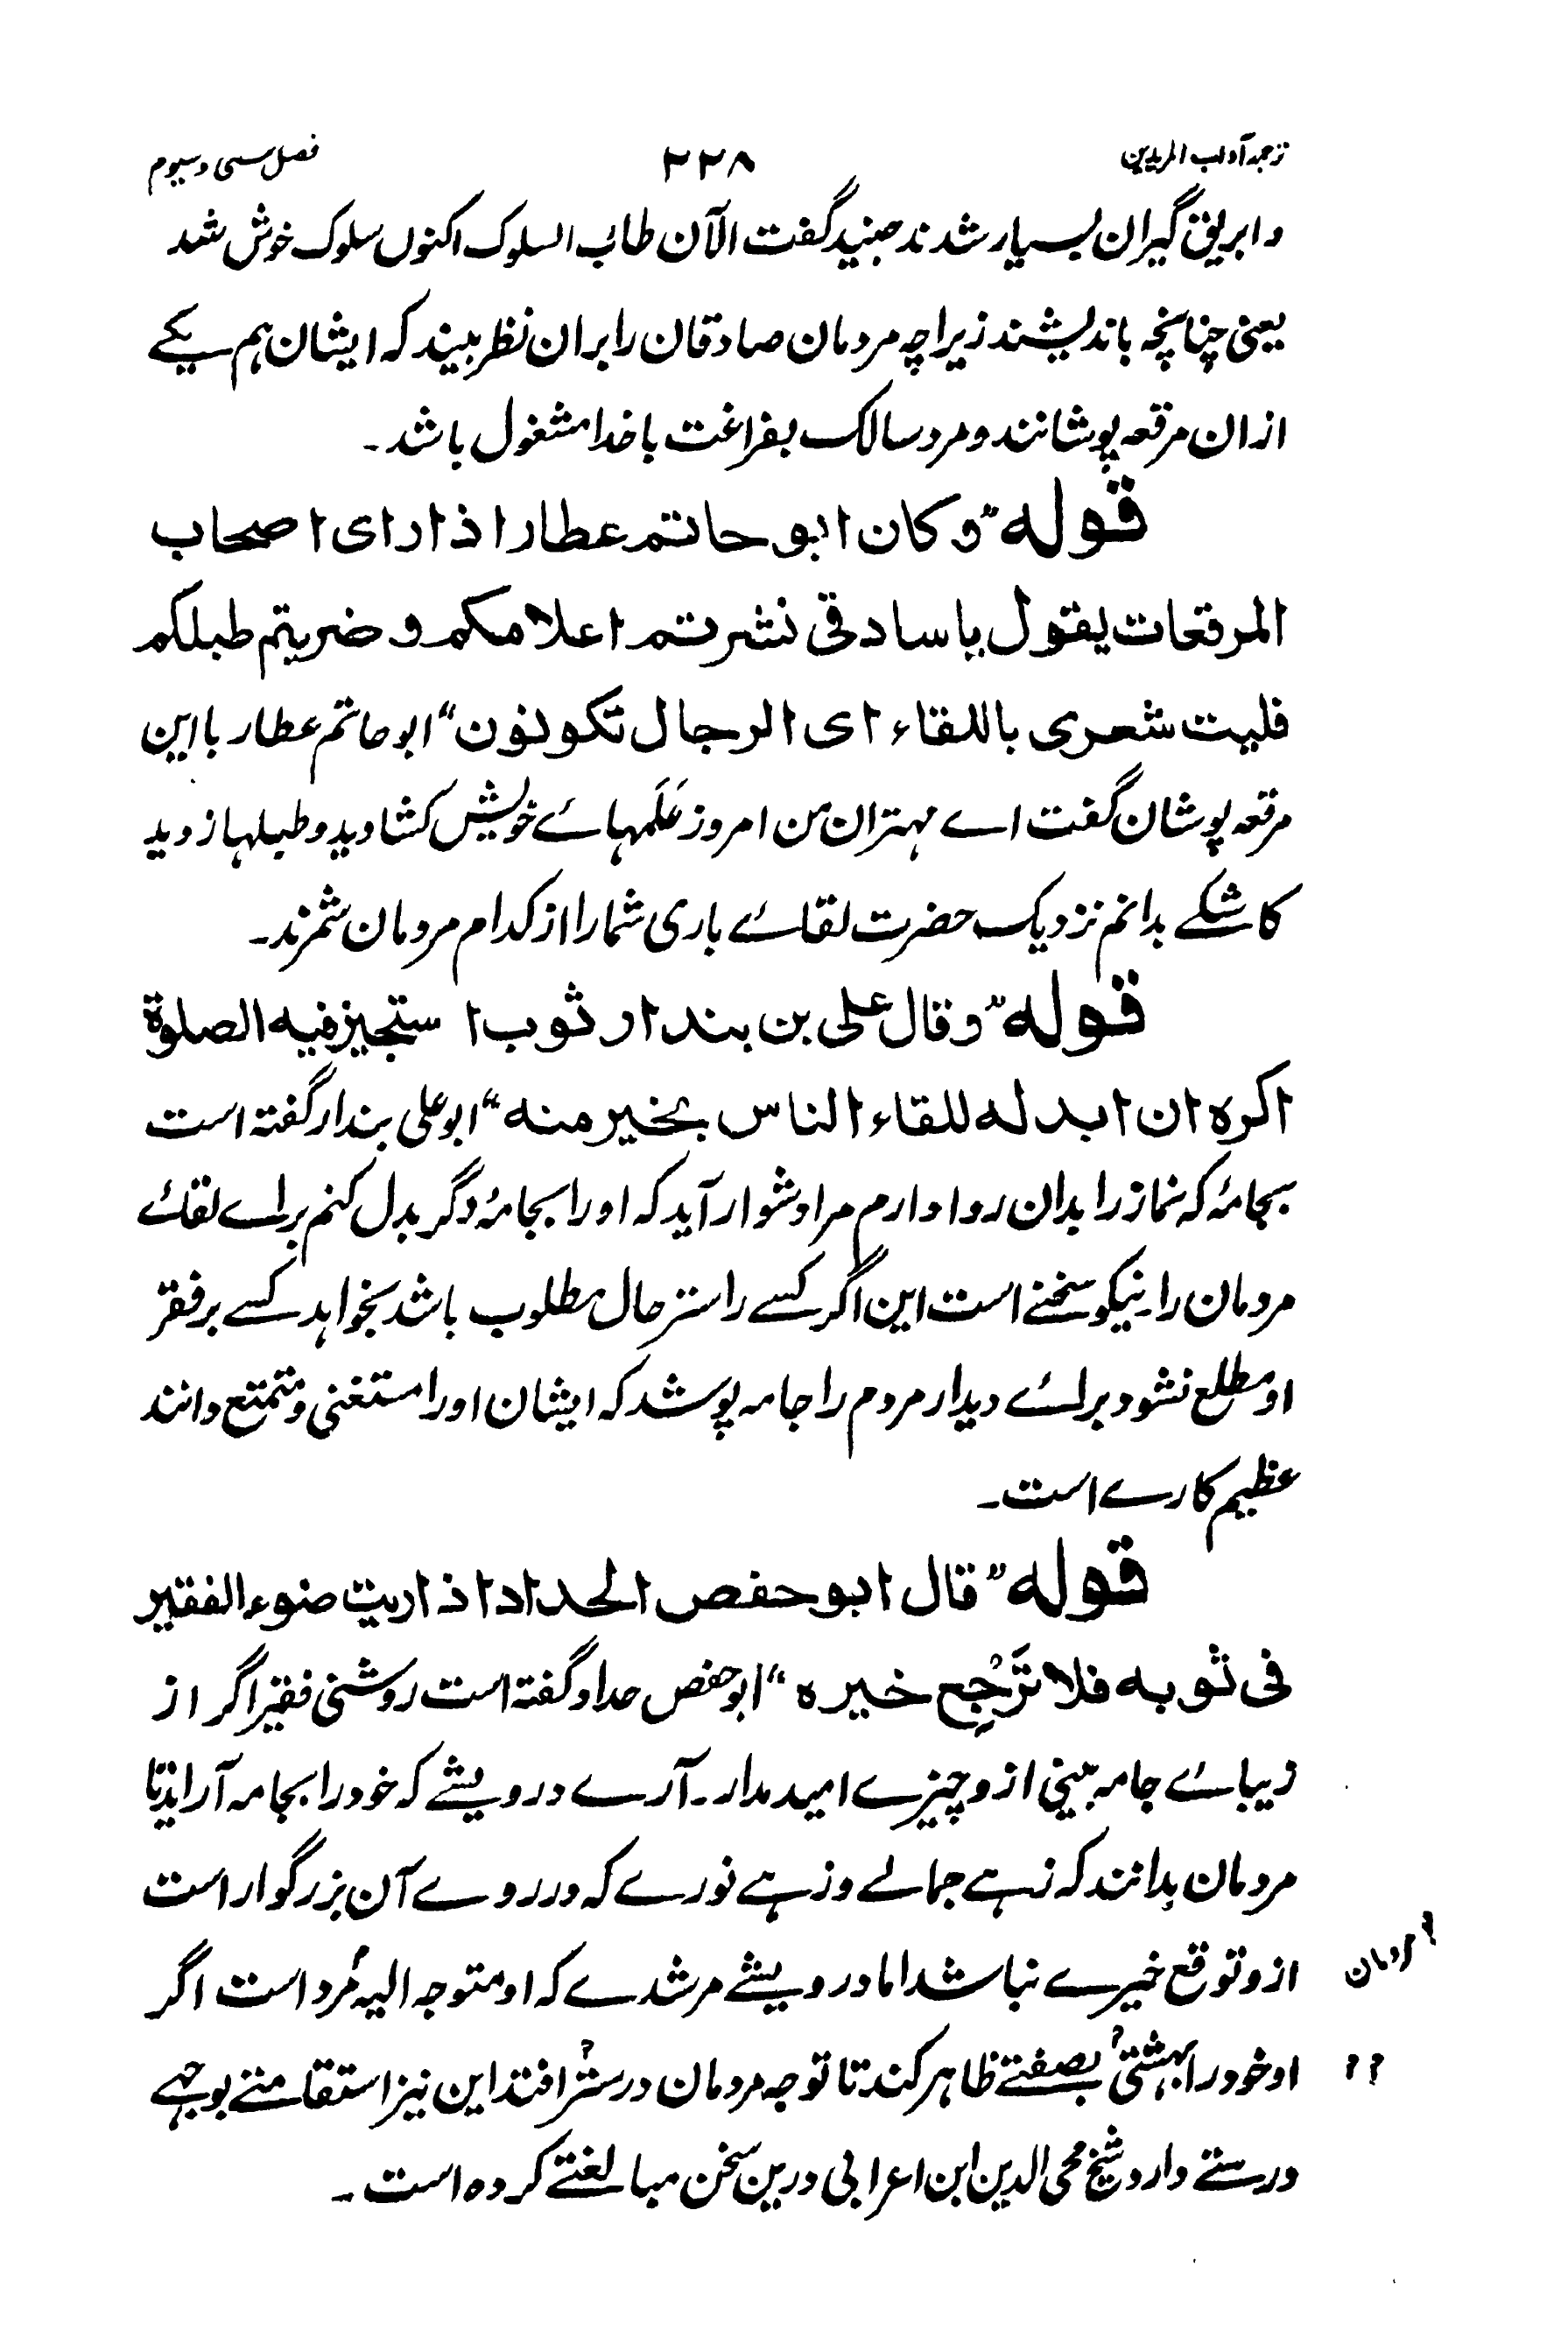 ترجمہ آداب المریدین ۲۲۸ فصل سی و سیوم
و ابریق گیران بسیار شدند جنید گفت الآن طاب السلوک اکنوں سلوک خوش شد
یعنی چنانچہ باندیشند زیراچہ مردمان صادقان را بران نظر بیند کہ ایشان ہم یکے
ازان مرقعہ پوشانند و مرد سالک بفراغت باخدا مشغول باشد۔
قولہ "وکان ابو حاتم عطار اذا رای اصحاب
المرقعات یقول یا سادتی نشرتم اعلامکم و ضربتم طبلکم
فلیت شعری باللقاء ای الرجال تکونون" ابو حاتم عطار با این
مرقعہ پوشان گفت اے مہتران من امروز عَلَمہائے خویش کشادید و طبلہا زدید
کاشکے بدانم نزدیک حضرت لقائے باری شما را از کدام مردمان شمرند۔
قولہ "وقال علی بن بندار ثوب ا ستجیز فیہ الصلوۃ
اکرہ ان ابدلہ للقاء الناس بخیر منہ" ابو علی بندار گفتہ است
بجامۂ کہ نماز را بدان روا دارم مرا دشوار آید کہ او را بجامۂ دگر بدل کنم براے لقائے
مردمان را نیکو سخنے است این اگر کسے را ستر حال مطلوب باشد نخواہد کسے بر فقر
او مطلع نشود برائے دیدار مردم را جامہ پوشد کہ ایشان او را مستغنی و متمتع دانند
عظیم کارے است۔
قولہ "قال ابو حفص الحداد اذا رایت ضوء الفقیر
فی ثوبہ فلا تَرْجِع خیرہ" ابو حفص حداد گفتہ است روشنی فقیر اگر از
زیبائے جامہ بینی ازو چیزے امید مدار۔ آرے درویشے کہ خود را بجامہ آراید تا
مردمان بدانند کہ زہے جمالے و زہے نورے کہ در روے آن بزرگوار است
ازو توقع خیرے نباشد اما درویشے مرشدے کہ او متوجہ الیہ مُرد است اگر
او خود را بہشتی بصفتے ظاہر کند تا توجہ مردمان در ستر افتد این نیز استقامتے بوجہے
درستے دارد شیخ محی الدین ابن اعرابی درین سخن مبالغتے کردہ است۔